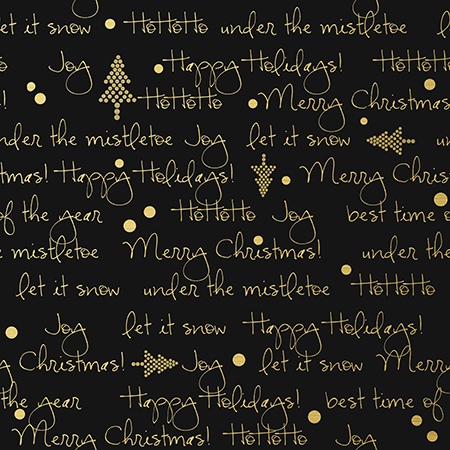 let it snow HoHoHo under the mistletoe l
Ho Joy Happy Holidays! HoHoHo
HoHoHo Merry Christmas
under the mistletoe Joy let it snow un
stmas! Happy Holidays! Merry Chris
of the year HoHoHo Joy best time o
e mistletoe Merry Christmas! under the
let it snow under the mistletoe HoHoHo
Joy let it snow Happy Holidays!
Christmas! Joy let it snow Merry
the year Happy Holidays! best time of
Merry Christmas! HoHoHo Joy